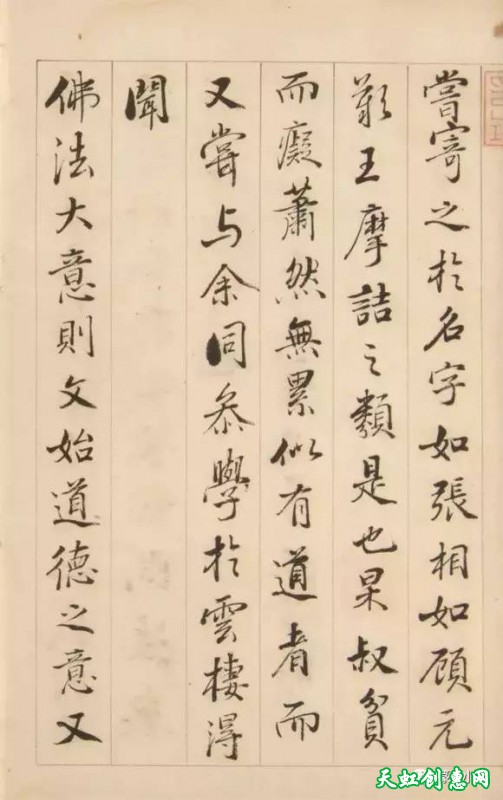 嘗寄之於名字如張相如顧元
歎王摩詰之類是也杲叔貧
而癡蕭然無累似有道者而
又嘗与余同叅學於雲棲得
聞
佛法大意則文始道德之意又
天虹创意网